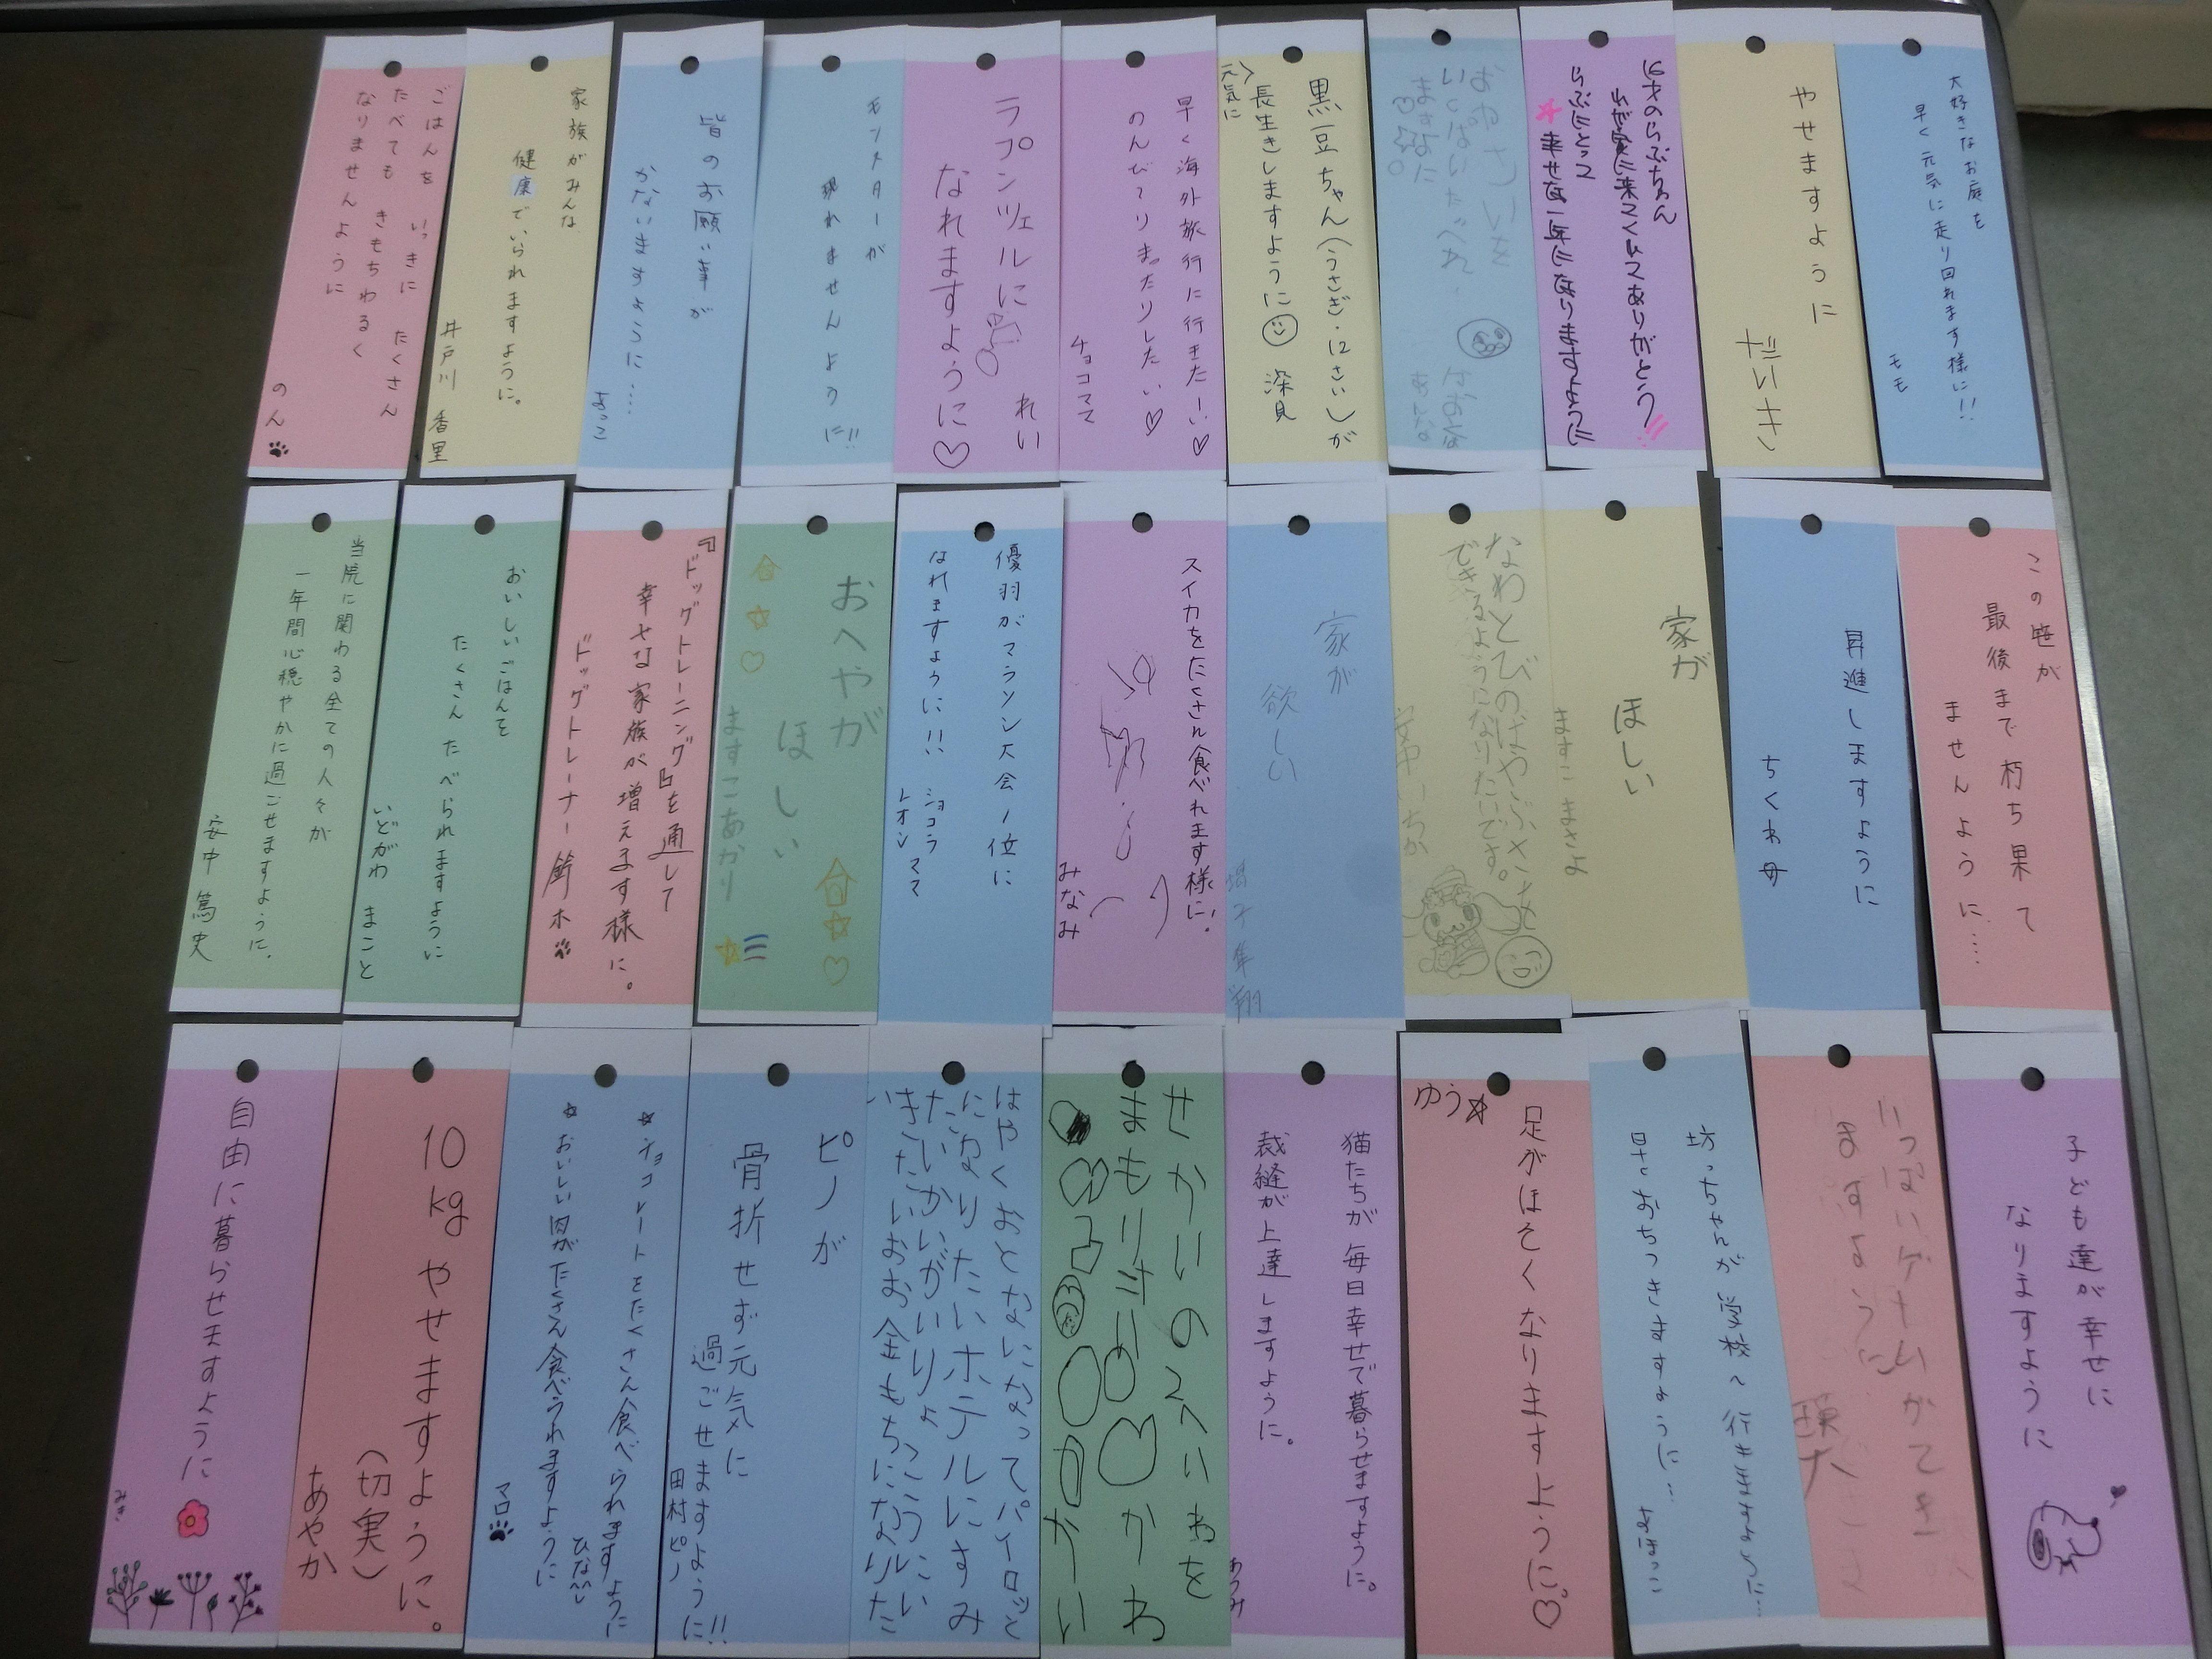 大好きなお庭を
早く元気に走り回れます様に!!
モモ
やせますように
だいき
16才のらぶちゃん
わが家に来てくれてありがとう!!
らぶにとって
★幸せな一年になりますように
おやさいを
いっぱいたべれ
ますように
黒豆ちゃん(うさぎ・12さい)が
元気に
長生きしますように
深見
早く海外旅行に行きたい!♡
のんびりまったりしたい♡
チョコママ
ラプンツェルに
なれますように♡
れい
モンスターが
現れませんように!!
皆のお願い事が
かないますように…
家族がみんな
健康でいられますように。
井戸川 香里
ごはんを いっきに たくさん
たべても きもちわるく
なりませんように
のん
この笹が
最後まで朽ち果て
ませんように…
昇進しますように
ちくわ母
家が
ほしい
ますこ まさよ
なわとびのはやぶさも
できるようになりたいです。
家が
欲しい
隼翔
スイカをたくさん食べれます様に!
みなみ
優羽がマラソン大会1位に
なれますように!!
ショコラ
レオン ママ
おへやが
ほしい
ますこあかり
『ドッグトレーニング』を通して
幸せな家族が増えます様に。
ドッグトレーナー 鈴木
おいしいごはんを
たくさん たべられますように
いどがわ まこと
当院に関わる全ての人々が
一年間心穏やかに過ごせますように。
安中 篤史
子ども達が幸せに
なりますように
いっぱいゲームがてき
ますように
坊っちゃんが学校へ行きますように…
早くおちつきますように…
足がほそくなりますように。♡
ゆう☆
猫たちが毎日幸せで暮らせますように。
裁縫が上達しますように。
せかいのへいわを
まもりきりの
はやくおとなになってパイロット
になりたいホテルにすみ
たいかいがいりょこうにい
きたいおお金もちになりた
い
ピノが
骨折せず元気に
過ごせますように!!
田村ピノ
☆チョコレートをたくさん食べられますように
ひな
☆おいしい肉がたくさん食べられますように
マロ
10kgやせますように。
(切実)
あやか
自由に暮らせますように
みき